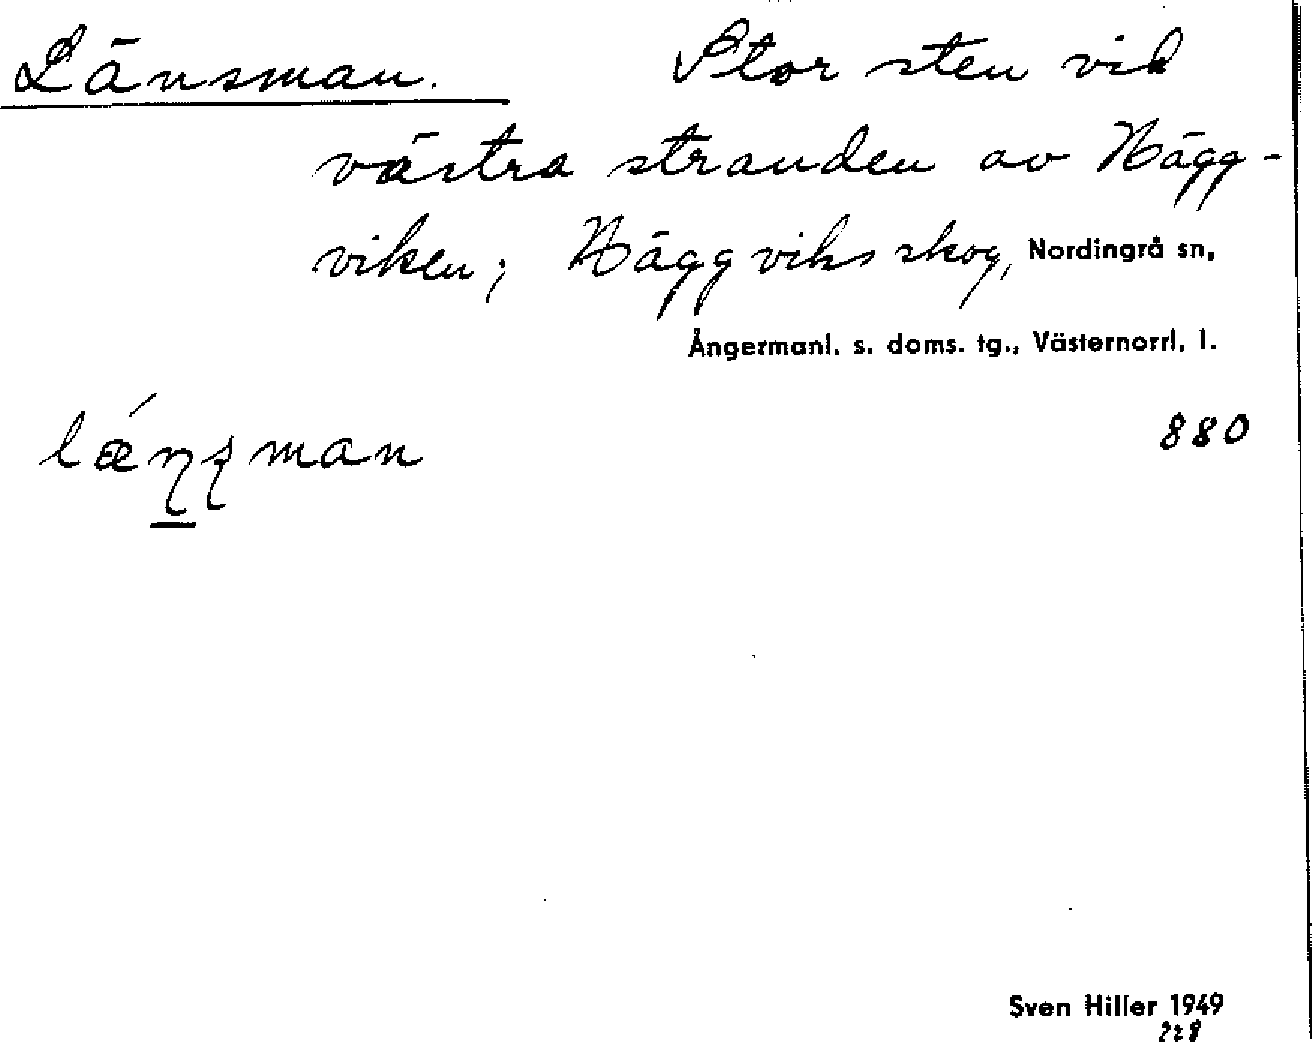 Länsman. Stor sten vid
västra stranden av Hägg-
viken; Häggviks skog, Nordingrå sn,
Ångermanl. s. doms. tg., Västernorrl. l.
880
Sven Hiller 1949